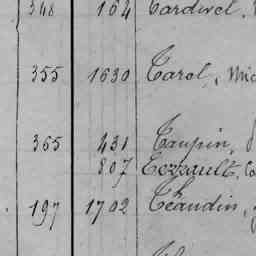 348 164 Cardivel,
355 1630 Carol, Mic
365 431 Caupin,
807 Cezzault, Ca
197 1702 Chaudin,